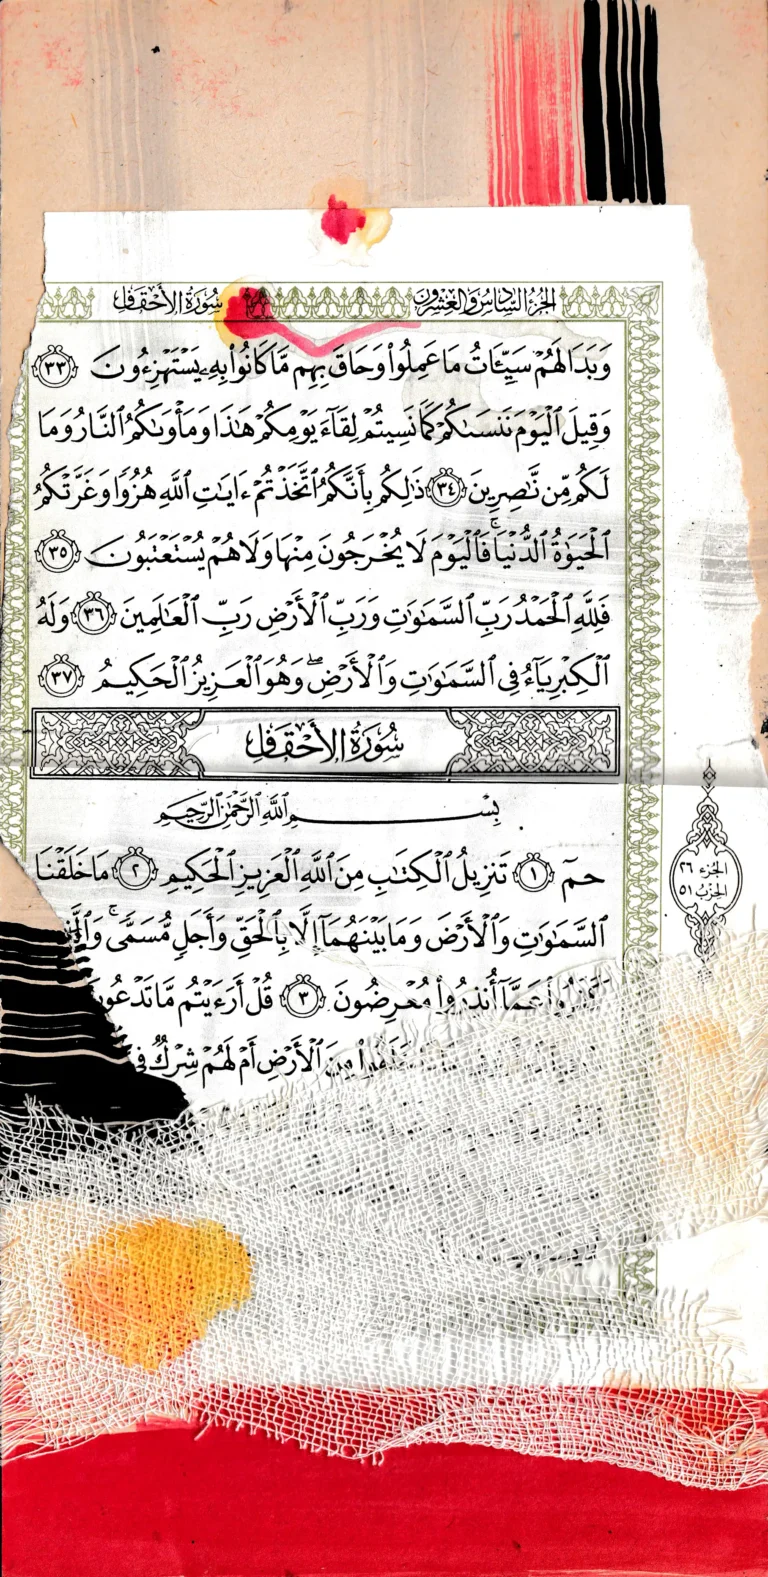 الجُزْءُ السَّادِسُ وَالعِشْرُونَ سُورَةُ الأَحْقَافِ
وَبَدَا لَهُمْ سَيِّـَٔاتُ مَا عَمِلُوا۟ وَحَاقَ بِهِم مَّا كَانُوا۟ بِهِۦ يَسْتَهْزِءُونَ ٣٣
وَقِيلَ ٱلْيَوْمَ نَنسَىٰكُمْ كَمَا نَسِيتُمْ لِقَآءَ يَوْمِكُمْ هَٰذَا وَمَأْوَىٰكُمُ ٱلنَّارُ وَمَا
لَكُم مِّن نَّٰصِرِينَ ٣٤ ذَٰلِكُم بِأَنَّكُمُ ٱتَّخَذْتُمْ ءَايَٰتِ ٱللَّهِ هُزُوًا وَغَرَّتْكُمُ
ٱلْحَيَوٰةُ ٱلدُّنْيَا ۚ فَٱلْيَوْمَ لَا يُخْرَجُونَ مِنْهَا وَلَا هُمْ يُسْتَعْتَبُونَ ٣٥
فَلِلَّهِ ٱلْحَمْدُ رَبِّ ٱلسَّمَٰوَٰتِ وَرَبِّ ٱلْأَرْضِ رَبِّ ٱلْعَٰلَمِينَ ٣٦ وَلَهُ
ٱلْكِبْرِيَآءُ فِى ٱلسَّمَٰوَٰتِ وَٱلْأَرْضِ ۖ وَهُوَ ٱلْعَزِيزُ ٱلْحَكِيمُ ٣٧
سُورَةُ الأَحْقَافِ
بِسْمِ ٱللَّهِ ٱلرَّحْمَٰنِ ٱلرَّحِيمِ
حمٓ ١ تَنزِيلُ ٱلْكِتَٰبِ مِنَ ٱللَّهِ ٱلْعَزِيزِ ٱلْحَكِيمِ ٢ مَا خَلَقْنَا
الجزء ٢٦
الحزب ٥١
ٱلسَّمَٰوَٰتِ وَٱلْأَرْضَ وَمَا بَيْنَهُمَآ إِلَّا بِٱلْحَقِّ وَأَجَلٍ مُّسَمًّى ۚ
عَمَّآ أُنذِرُوا۟ مُعْرِضُونَ ٣ قُلْ أَرَءَيْتُم مَّا تَدْعُونَ
مِنَ ٱلْأَرْضِ أَمْ لَهُمْ شِرْكٌ فِى